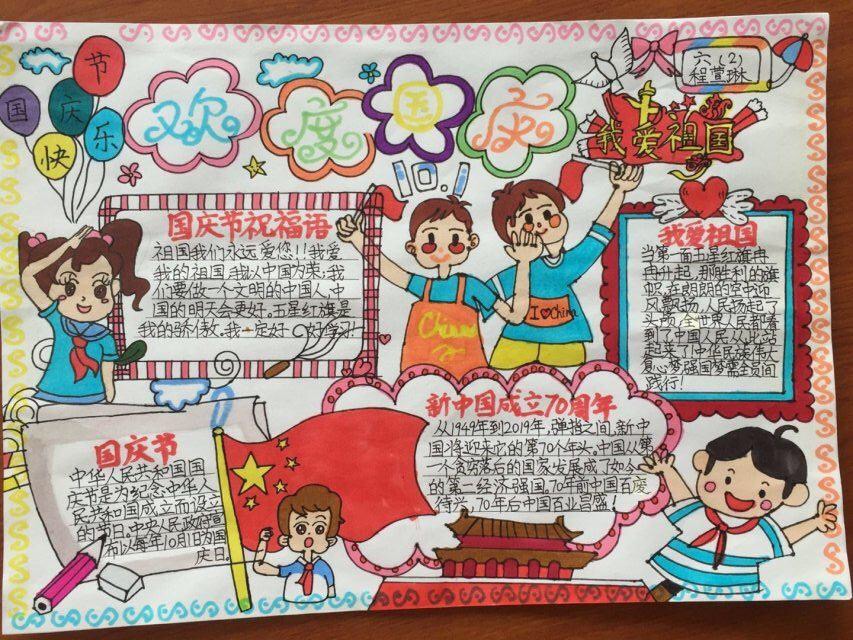 国庆
快乐
节
欢度国庆
六(2)
程萱琳
我爱祖国
10.1
国庆节祝福语
祖国我们永远爱您!!我爱
我的祖国,我以中国为荣,我
们要做一个文明的中国人,中
国的明天会更好,五星红旗是
我的骄傲。我一定好好学习!
China
I❤China
我爱祖国
当第一面五星红旗冉
冉升起,那胜利的旗
帜,在朗朗的空中迎
风飘扬,人民扬起了
头颅,全世界人民都看
到了中国人民从此站
起来了中华民族伟大
复心梦强国梦需全员间
践行!
国庆节
中华人民共和国国
庆节是为纪念中华人
民共和国成立而设立
的节日。中央人民政府宣
布以每年10月1日为国
庆日。
新中国成立70周年
从1949年到2019年,弹指之间,新中
国将迎来它的第70个年头。中国从第
一个贫穷落后的国家发展成了如今
的第一经济强国,70年前中国百废
待兴,70年后中国百业昌盛!